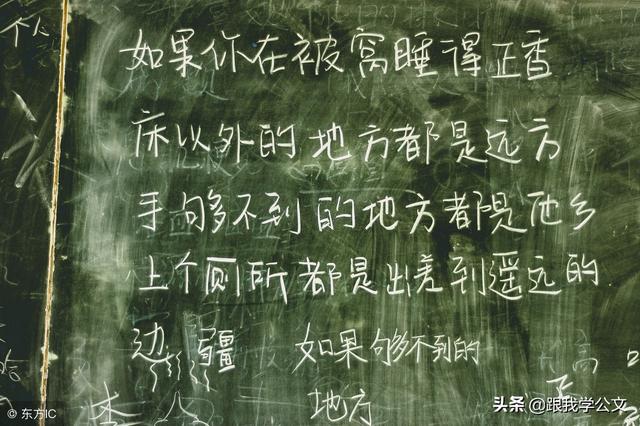 个人
如果你在被窝睡得正香
床以外的地方都是远方
手够不到的地方都是他乡
上个厕所都是出差到遥远的
边疆 如果够不到的
地方
© 东方IC
头条 @跟我学公文